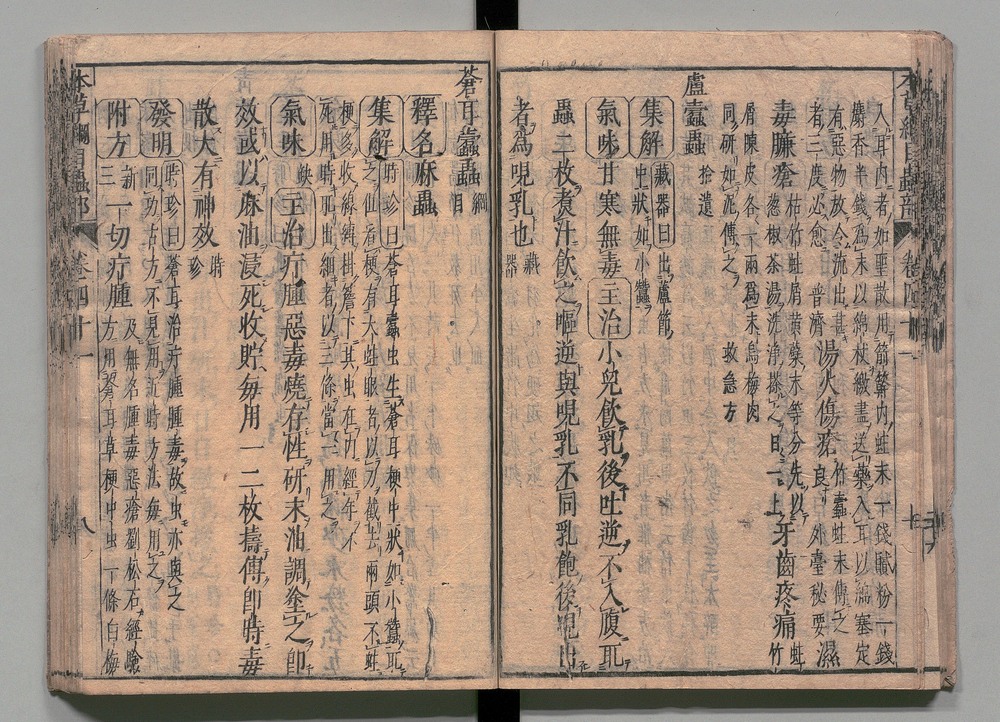 入耳內者如聖散用箭簳內蛀末一錢膩粉一錢
麝香半錢爲末以綿杖繳盡送藥入耳以綿塞定
有惡物放令流出甚
者三二度必愈 普濟 湯火傷瘡 竹蠹蛀末傅之 外臺秘要 濕
毒臁瘡 枯竹蛀屑黃蘗末等分先以葱椒茶湯洗淨搽之日一上 牙齒疼痛 竹蛀
屑陳皮各一兩爲末烏梅肉
同研如泥傅之 救急方
蘆蠹蟲 拾遺
集解 藏器曰出蘆節中狀如小蠶
氣味甘寒無毒主治小兒飲乳後吐逆不入腹取
蟲二枚煮汁飲之嘔逆與哯乳不同乳飽後哯出
者爲哯乳也 藏器
蒼耳蠹蟲 綱目
釋名麻蟲
集解 時珍曰蒼耳蠹虫生蒼耳梗中狀如小蠶取
之但看梗有大蛀眼者以刀截去兩頭不蛀
梗多收線縛掛簷下其虫在內經年不
死用時取出細者以三條當一用之
氣味缺主治疔腫惡毒燒存性研末油調塗之卽
效或以麻油浸死收貯每用一二枚擣傅卽時毒
散大有神效 時珍
發明 時珍曰蒼耳治疔腫腫毒故虫亦與之
同功古方不見用近時方法每用之
附方 新三 一切疔腫 及無名腫毒惡瘡劉松石經驗
方用蒼耳草梗中虫一條白梅
本草綱目蟲部 卷四十一 八